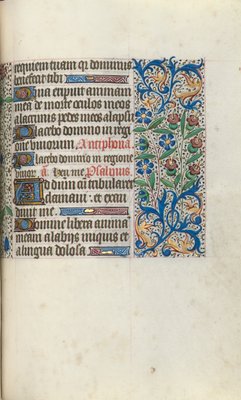 requiem tuam qr dominus
benefecit tibi
Quia eripuit animam
meā de morte oculos meos
a lacrimis pedes meos a lapsu
Placebo domino in regi
one viuorum Antiphona
Placebo domino in regione
viuor a. hey me psalmus
Ad dnm cū tribularer
clamaui et exau
diuit me
Domine libera anima
meam a labijs iniquis et
a lingua dolosa